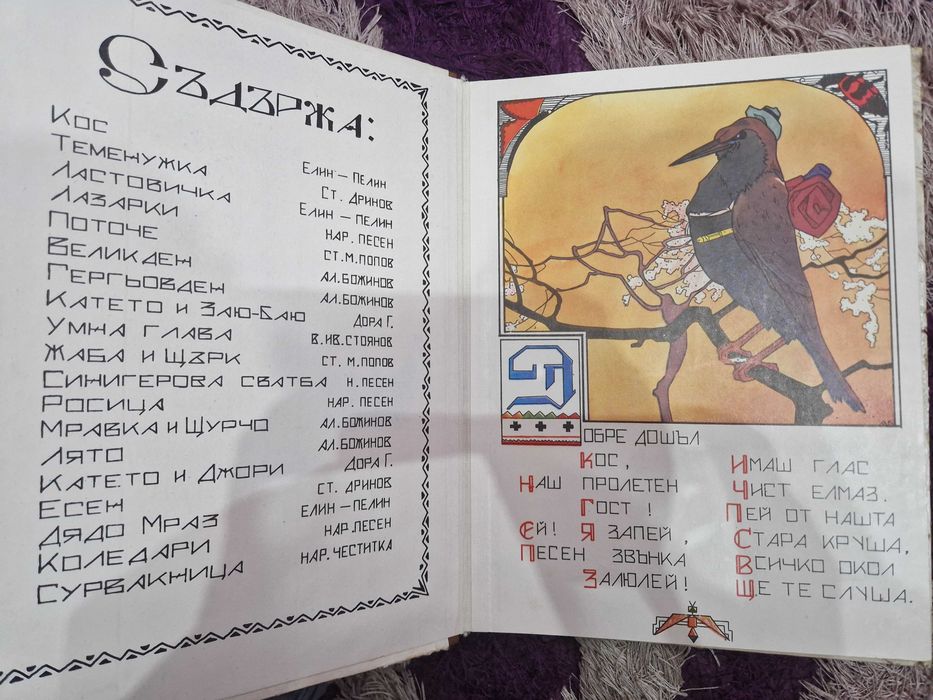 Съдържа:
Кос Елин – Пелин
Теменужка Ст. Дринов
Ластовичка Елин – Пелин
Лазарки нар. песен
Поточе Ст.М.Попов
Великден Ал.Божинов
Гергьовден Ал.Божинов
Катето и Заю-Баю Дора Г.
Умна глава В.Ив.Стоянов
Жаба и Щърк Ст. М.Попов
Синигерова сватба Н. песен
Росица Нар. песен
Мравка и Щурчо Ал.Божинов
Лято Ал.Божинов
Катето и Джори Дора Г.
Есен Ст. Дринов
Дядо Мраз Елин – Пелин
Коледари Нар.песен
Сурвакница Нар. честитка
Добре дошъл
Кос,
Наш пролетен
Гост!
Ей! Я запей,
Песен звънка
Залюлей!
Имаш глас
Чист елмаз.
Пей от нашта
Стара круша,
Всичко окол
Ще те слуша.